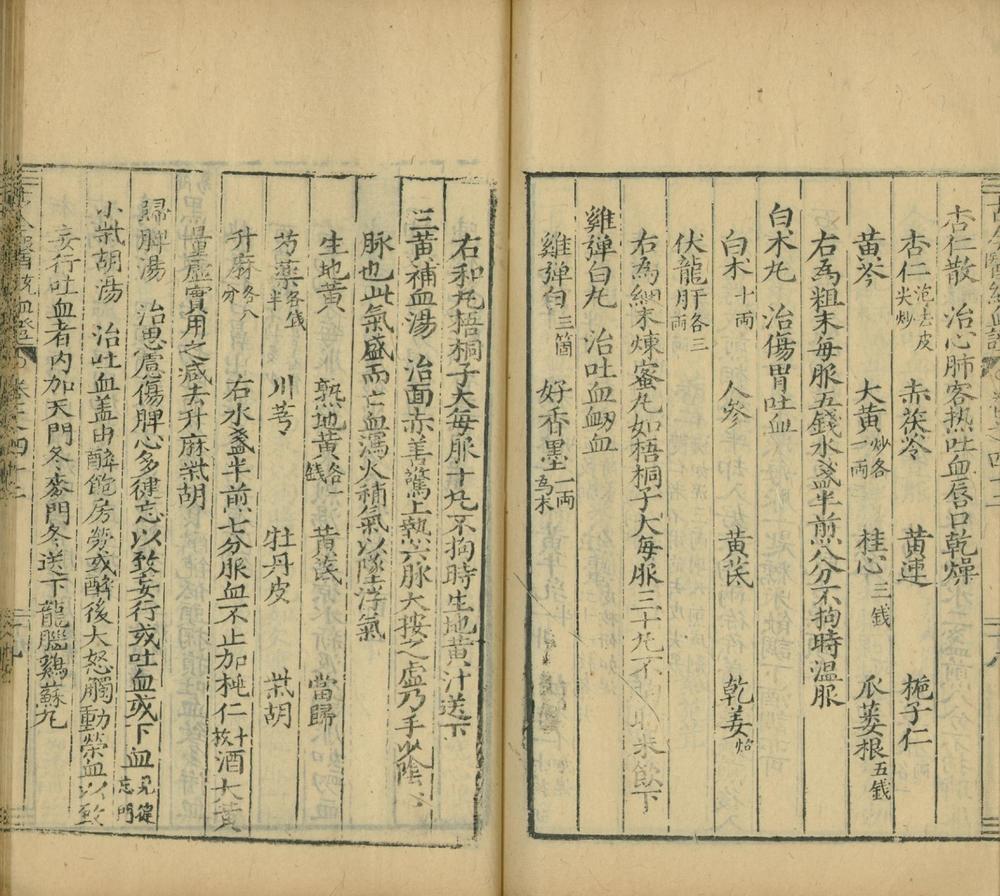 杏仁散 治心肺客热吐血唇口乾燥
杏仁泡去皮尖炒 赤茯苓 黄連 梔子仁
黄芩 大黄炒各一両 桂心三錢 瓜蔞根五錢
右為粗末每服五錢水盞半煎八分不拘時温服
白术丸 治傷胃吐血
白术十両 人參 黄茋 乾姜炮
伏龍肝各三両
右為細末煉蜜丸如梧桐子大每服三十丸不 米飲下
雞彈白丸 治吐血衂血
雞彈白三箇 好香墨一両為末
右和丸梧桐子大每服十丸不拘時生地黄汁送下
三黄補血湯 治面赤善驚上熱六脉大按之虚乃手少陰心
脉也此氣盛而亡血瀉火補氣以隊浮氣
生地黄 熟地黄各一錢 黄茋 當歸
芍藥各錢半 川芎 牡丹皮 柴胡
升麻各八分 右水盞半煎七分服血不止加桃仁十枚酒大黄
量虚實用之减去升麻柴胡
歸脾湯 治思慮傷脾心多健忘以致妄行或吐血或下血見健忘門
小柴胡湯 治吐血盖由醉飽房勞或醉後大怒觸動榮血以致
妄行吐血者内加天門冬麥門冬送下龍腦鷄蘇丸